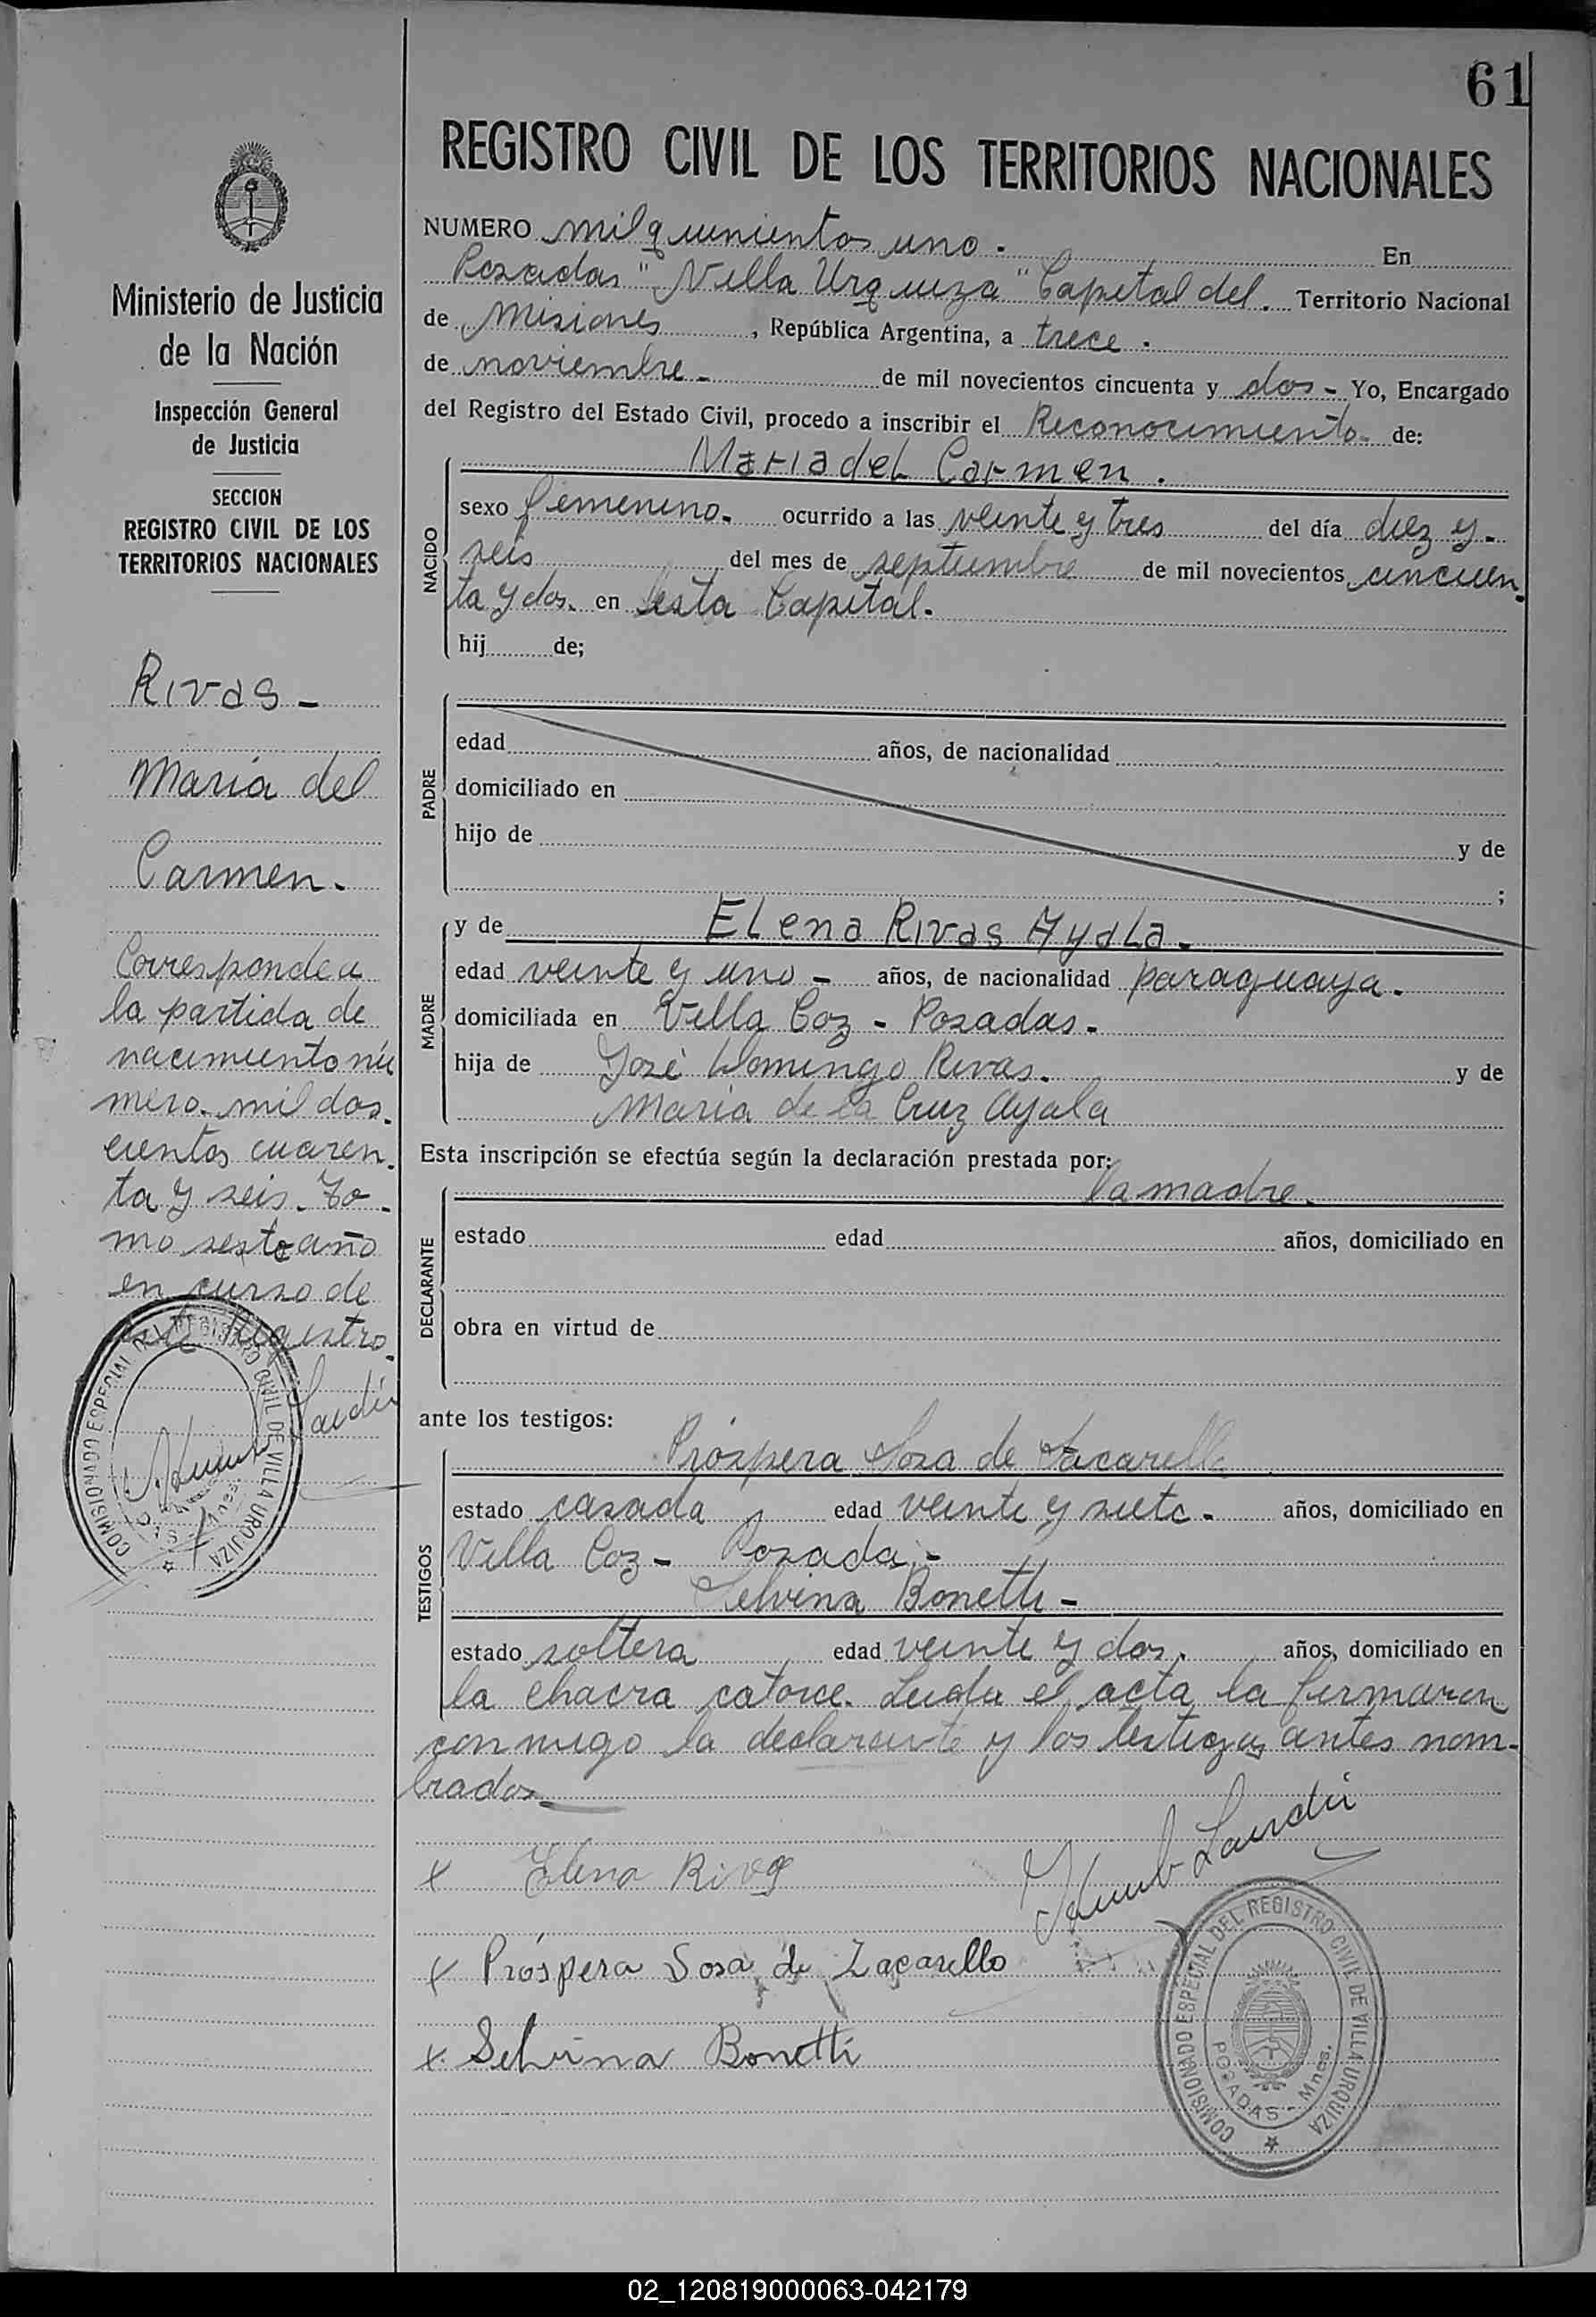 61
REGISTRO CIVIL DE LOS TERRITORIOS NACIONALES
Ministerio de Justicia
de la Nación
Inspección General
de Justicia
SECCION
REGISTRO CIVIL DE LOS
TERRITORIOS NACIONALES
Rivas -
Maria del
Carmen.
Corresponde a
la partida de
nacimiento nú
mero mil dos.
cientos cuaren.
ta y seis. To -
mo sexto año
en curso de
este Registro.
COMISIONADO ESPECIAL DEL REGISTRO CIVIL DE VILLA URQUIZA
NUMERO mil quinientos uno. En
Posadas "Villa Urquiza" Capital del. Territorio Nacional
de Misiones, República Argentina, a trece.
de noviembre - de mil novecientos cincuenta y dos - Yo, Encargado
del Registro del Estado Civil, procedo a inscribir el Reconocimiento de:
Maria del Carmen.
NACIDO
sexo femenino. ocurrido a las veinte y tres del día diez y -
seis del mes de septiembre de mil novecientos cincuen.
ta y dos. en esta Capital.
hij de;
PADRE
edad años, de nacionalidad
domiciliado en
hijo de y de
;
MADRE
y de Elena Rivas Ayala.
edad veinte y uno - años, de nacionalidad paraguaya.
domiciliada en Villa Coz - Posadas -
hija de José Domingo Rivas. y de
Maria de la Cruz Ayala
Esta inscripción se efectúa según la declaración prestada por:
la madre.
DECLARANTE
estado edad años, domiciliado en
obra en virtud de
ante los testigos:
Próspera Sosa de Zacarello
TESTIGOS
estado casada edad veinte y siete. años, domiciliado en
Villa Coz - Posadas -
Selvina Bonetti -
estado soltera edad veinte y dos. años, domiciliado en
la chacra catorce. Leida el acta la firmaron
conmigo la declarante y los testigos antes nom-
brados.
x Elena Rivas
x Próspera Sosa de Zacarello
x. Selvina Bonetti
COMISIONADO ESPECIAL DEL REGISTRO CIVIL DE VILLA URQUIZA
POSADAS - Mnes.
02_120819000063-042179